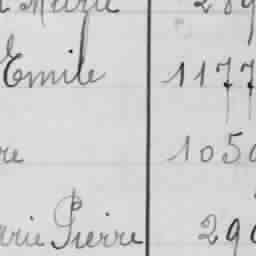 Marie 289
Emile 1177
re 1050
arie Pierre 290